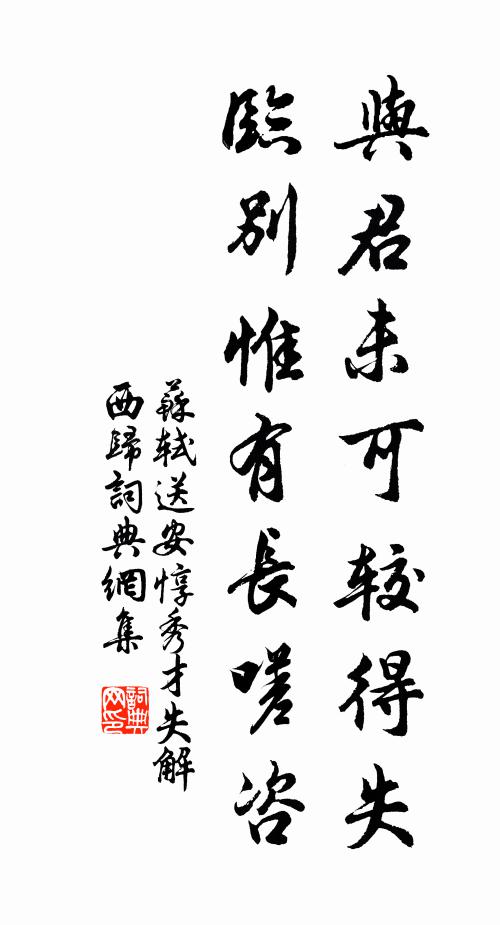 與君未可較得失
臨別惟有長嗟咨
蘇軾送安惇秀才失解
西歸詞典網集
詞典网印